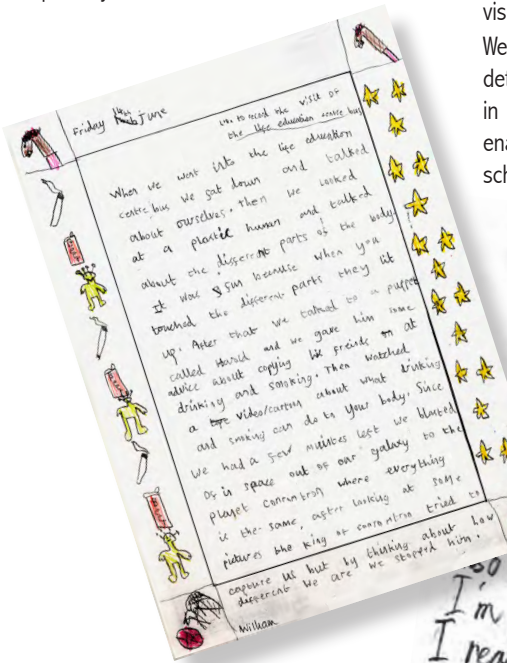 vis
We
det
in
ena
sch
Friday June
LO: to record the visit of
the life education centre bus
When we went into the life education
centre bus we sat down and talked
about ourselves. Then we looked
at a plastic human and talked
about the different parts of the body.
It was fun because when you
touched the different parts they lit
up. After that we talked to a puppet
called Harold and we gave him some
advice about copying his friends at
drinking and smoking. Then watched
a video/cartoon about what drinking
and smoking can do to your body. Since
we had a few minutes left we blasted
of in space out of our galaxy to the
planet conrmtron where everything
is the same, after looking at some
pictures the king of conrmtron tried to
capture us but by thinking about how
different we are we stopped him.
William
so
I'm
I rea